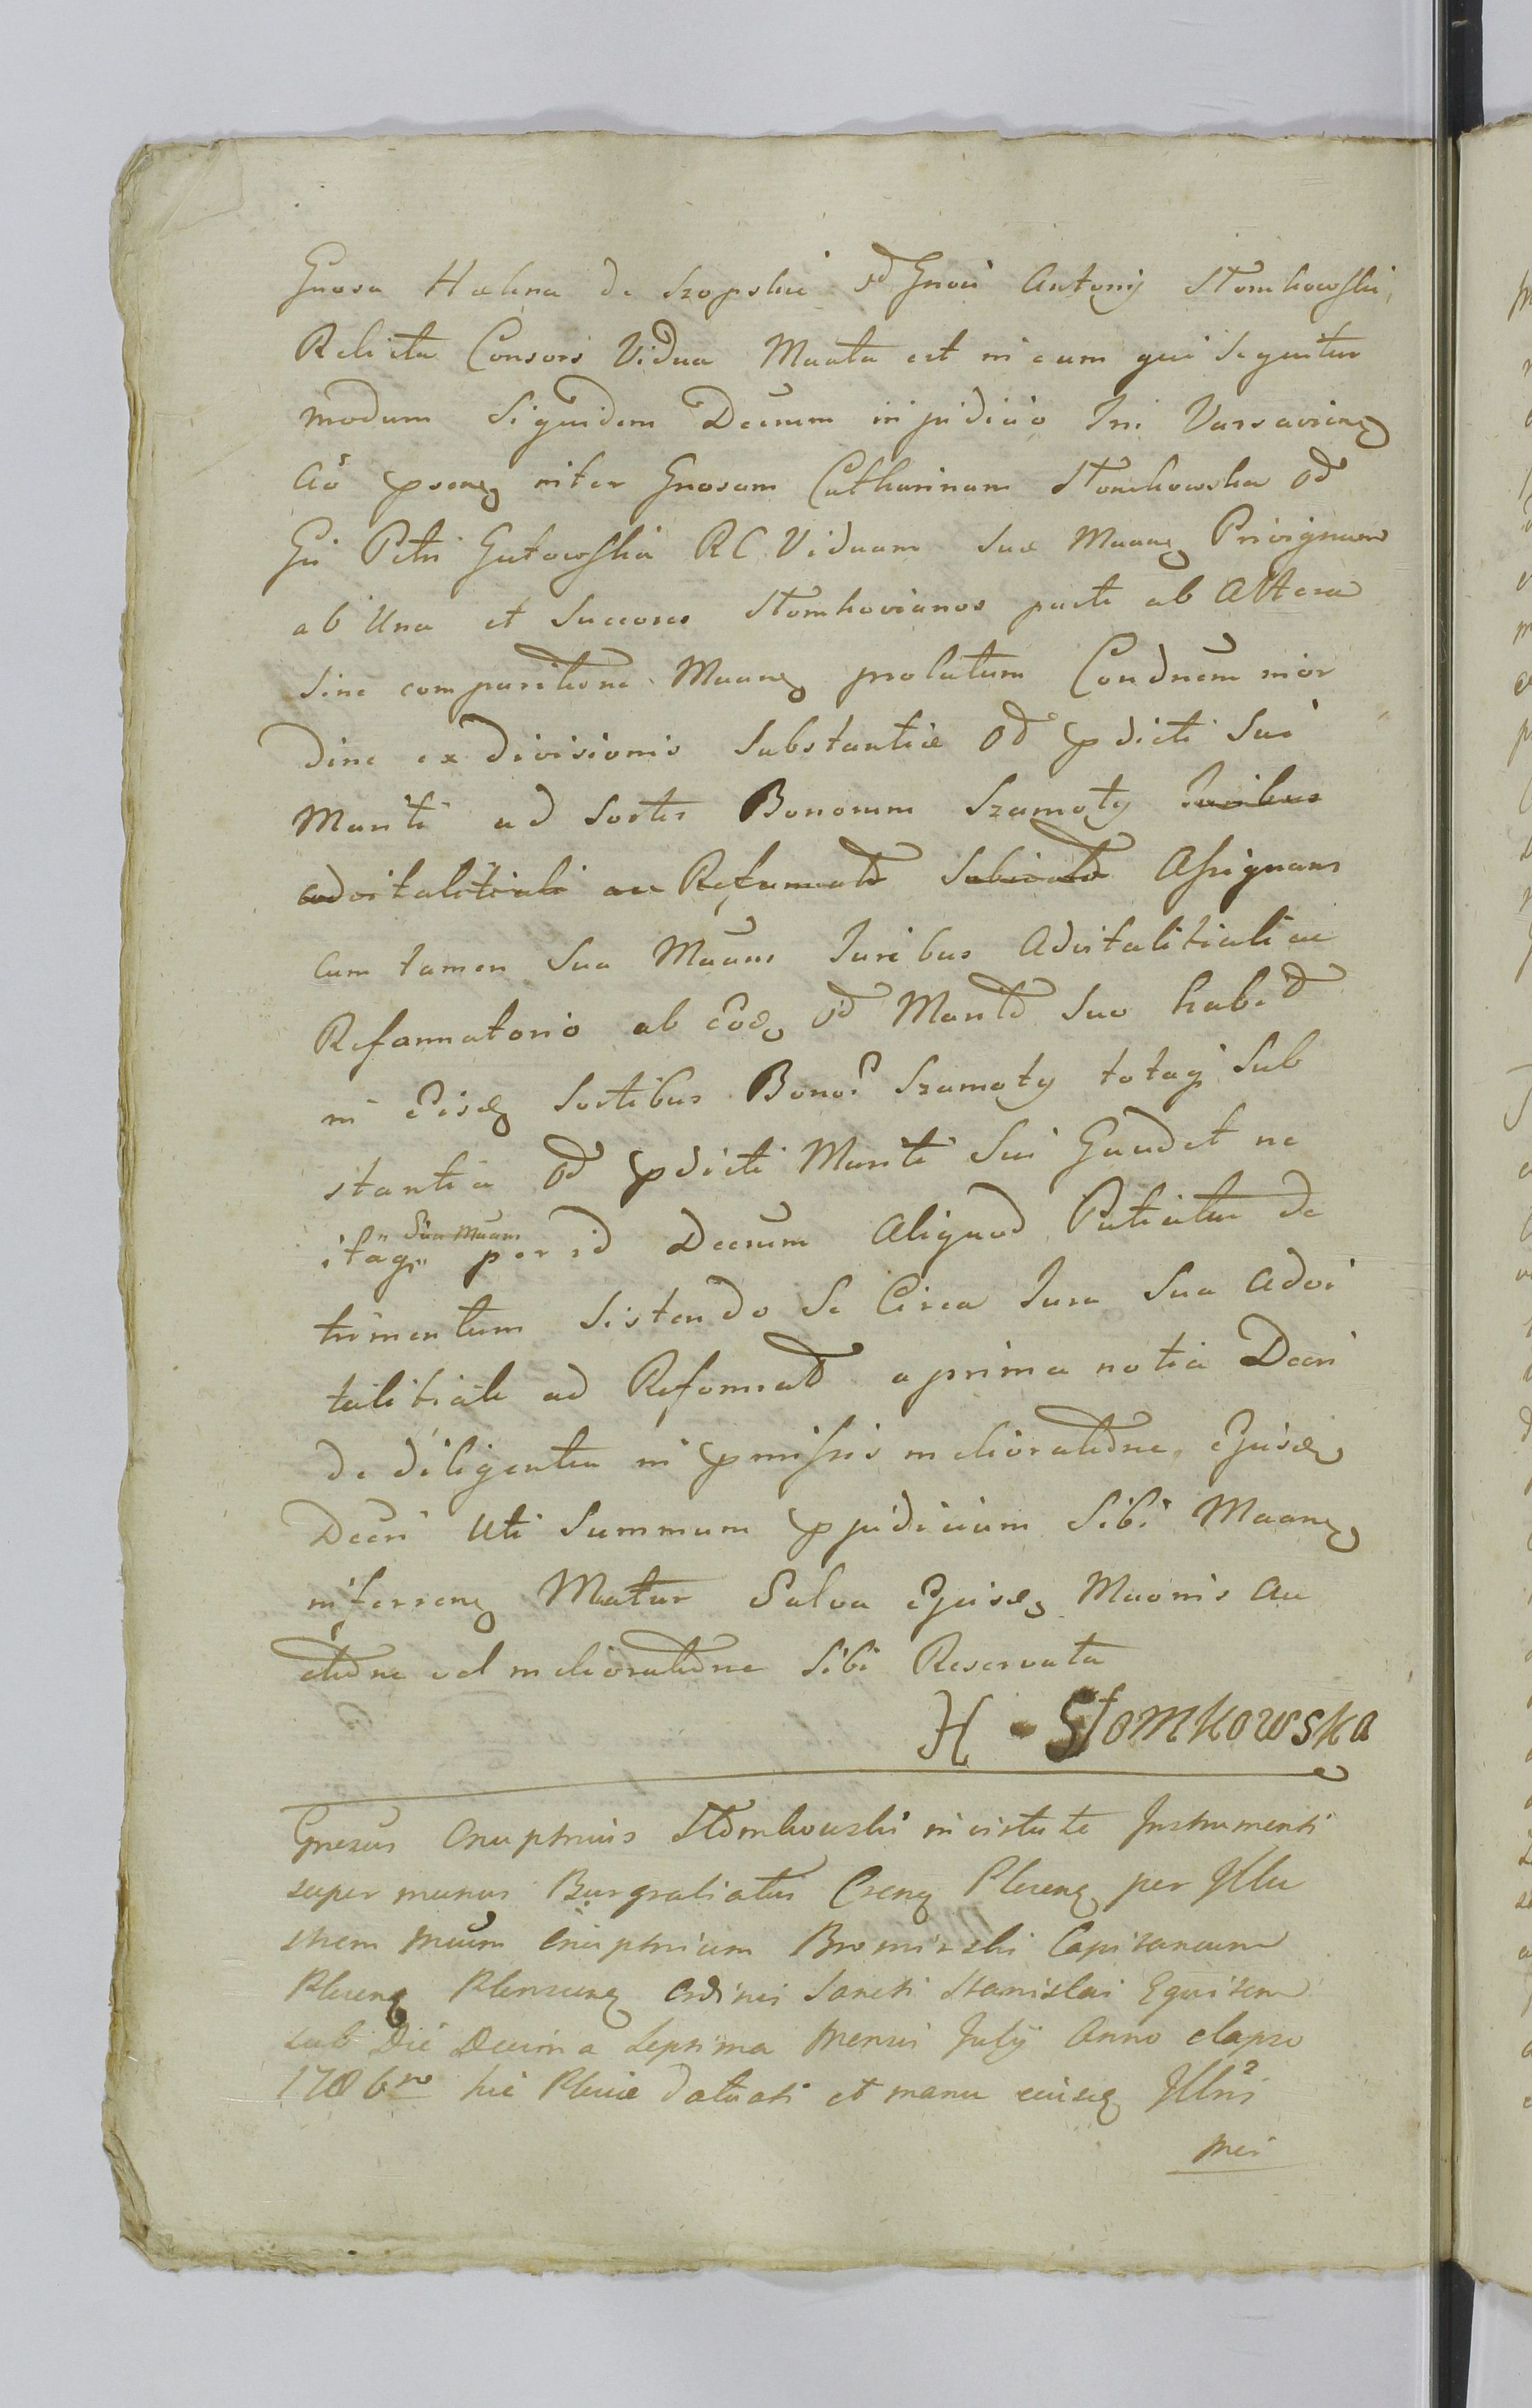 Gnosa Helena de Szopskie od Gnoi Antonij Stomkowski,
Relicta Consors Vidua Mnata est in eum qui sequitur
modum Siquidem Decrum in judicio Tri Varsavien
Aõ prsen inter Gnosam Catharinam Stomkowska Od
Gi Petri Gutowskii RC Viduam Suae Maan Privignam
ab Una et Succores Stomkovianos parte ab Altera
Sine comparitione Maan prolatum Condnem inor
dine ex divisionis Substantiae Od pdicti Sui
Mariti ad Sortes Bonorum Szamoty Juribus
advitalitiali ac Reformato Subiecto Assignans
cum tamen Sua Maans Juribus Advitalitiali ac
Reformatorio ab eod Od Marito Suo habito
in eisd Sortibus Bono. Szamoty totaq Sub
stantia Od pdicti Mariti Sui Gaudet ne
Sua Maans
itaq per id Decrum Aliquod Patiatur de
trimentum Sistendo Se Circa Jura Sua Advi
talitiale ad Reformat a prima notia Decri
de diligentia in pmissis melioratione ejusd
Decri Uti Summum pjudicium Sibi Maan
inferren Mnatur Salva ejusd Maonis Au
ctione vel melioratione Sibi Reservata
H - Stomkowska
Gnosus Onuphrius Stomkowski in virtute Instrumenti
super munus Burgrabiatus Cren Plicen per Illu
strem Mnum Onuphrium Bromirski Capitaneum
Plicen Plonscen Ordinis Sancti Stanislai Equitem
sub Die Decima Septima Mensis July Anno elapso
1786to hic Plicie datati et manu eiusd Illris
Mei